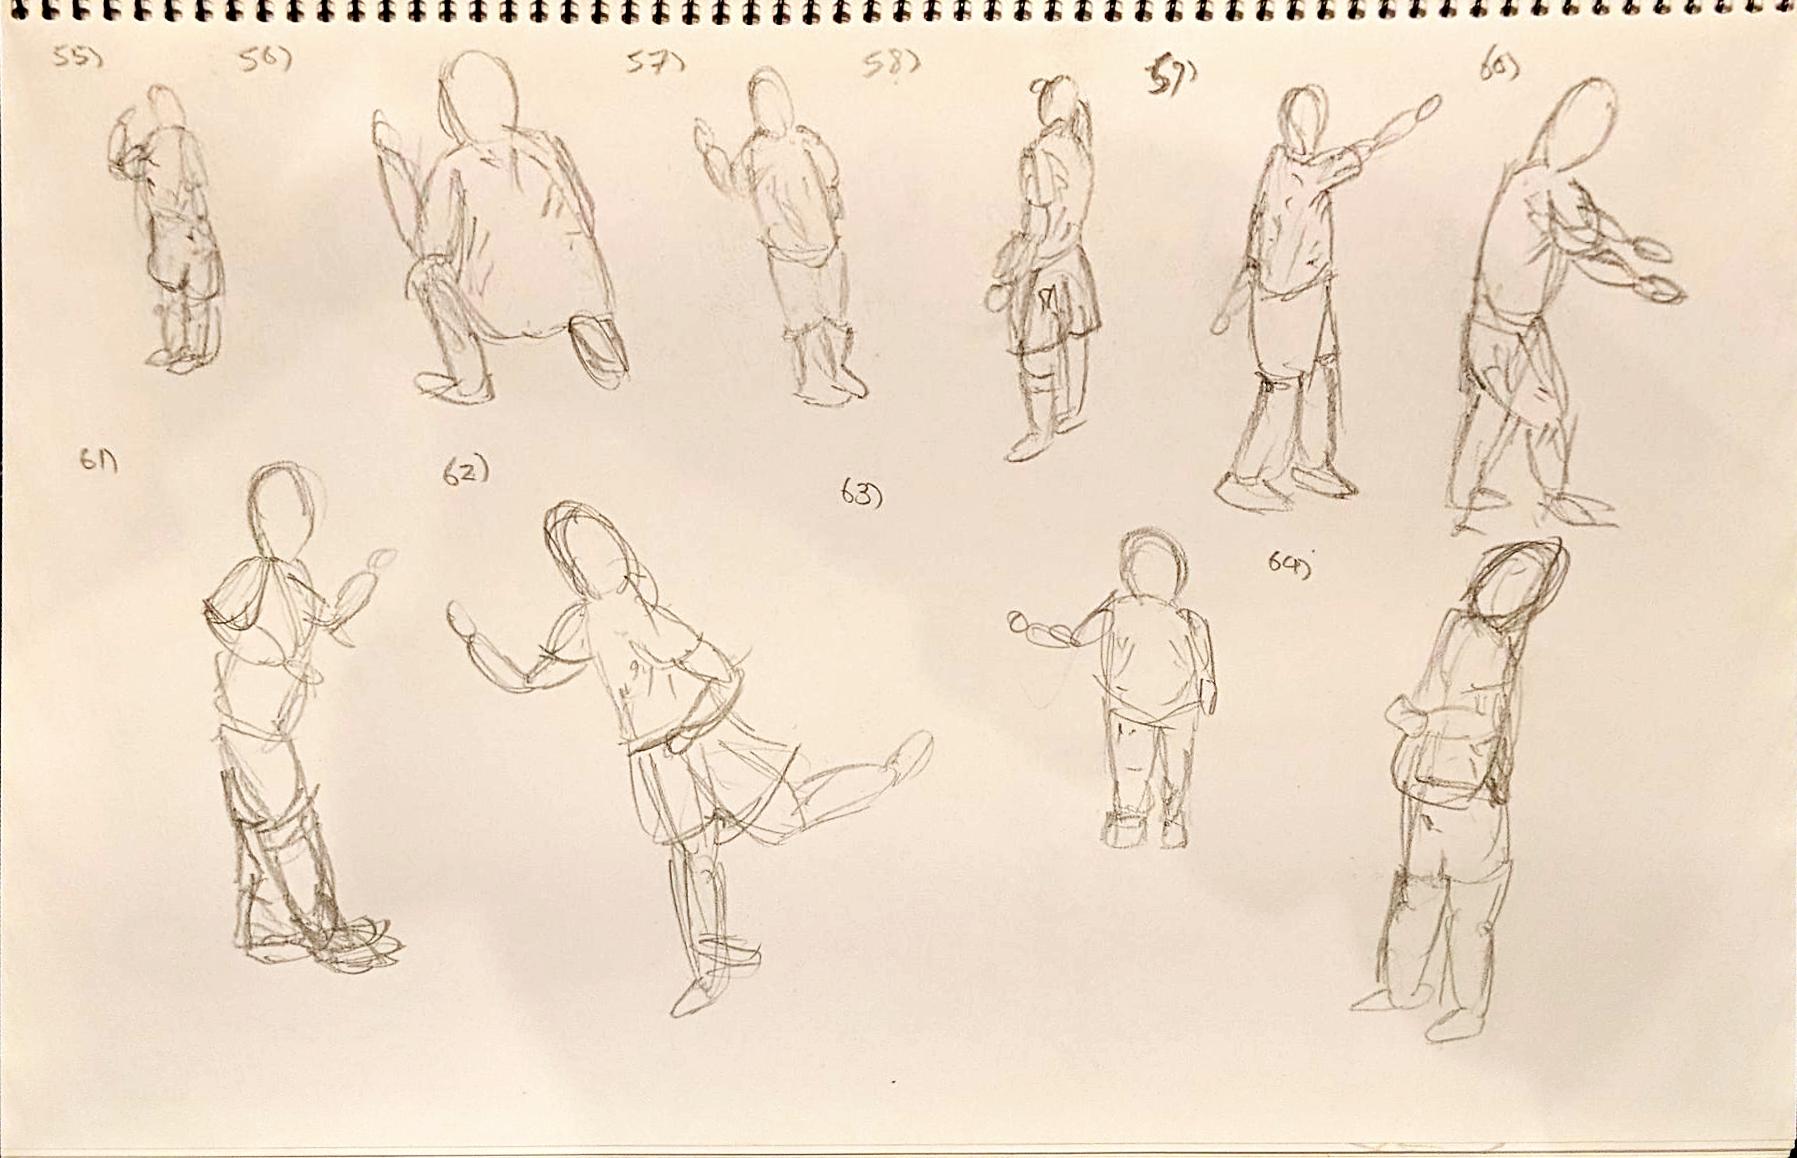 55)
56)
57)
58)
59)
60)
61)
62)
63)
64)